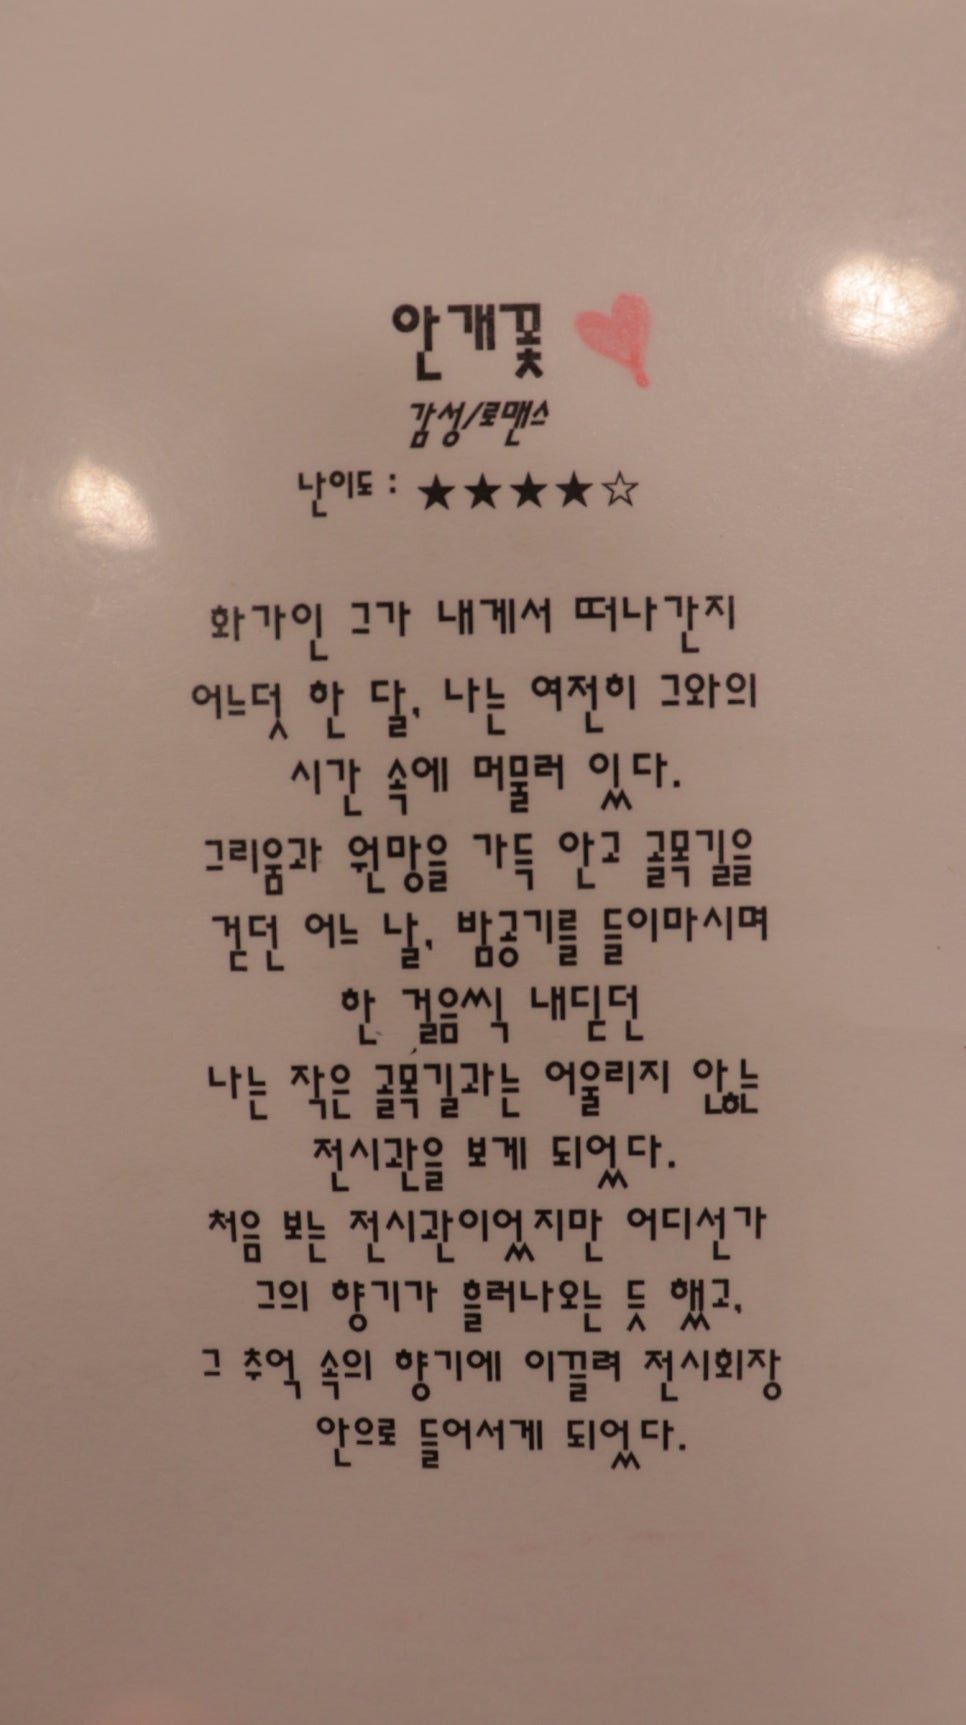 안개꽃
감성/로맨스
난이도 : ★★★★☆
화가인 그가 내게서 떠나간지
어느덧 한 달, 나는 여전히 그와의
시간 속에 머물러 있다.
그리움과 원망을 가득 안고 골목길을
걷던 어느 날, 밤공기를 들이마시며
한 걸음씩 내딛던
나는 작은 골목길과는 어울리지 않는
전시관을 보게 되었다.
처음 보는 전시관이었지만 어디선가
그의 향기가 흘러나오는 듯 했고,
그 추억 속의 향기에 이끌려 전시회장
안으로 들어서게 되었다.